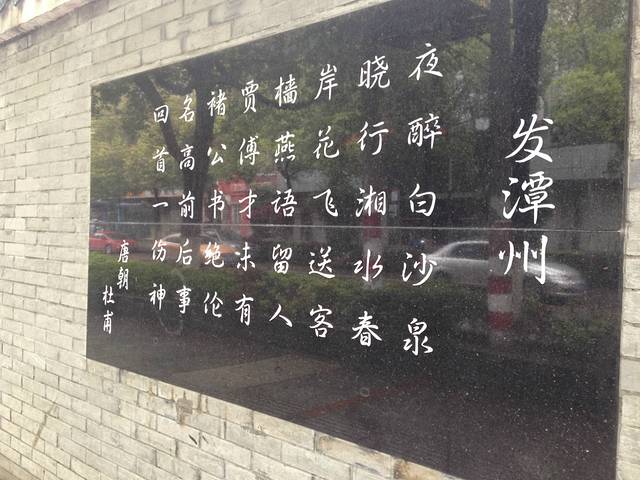 发潭州
夜醉白沙泉
晓行湘水春
岸花飞送客
樯燕语留人
贾傅才未有
褚公书绝伦
名高前后事
回首一伤神
唐朝
杜甫